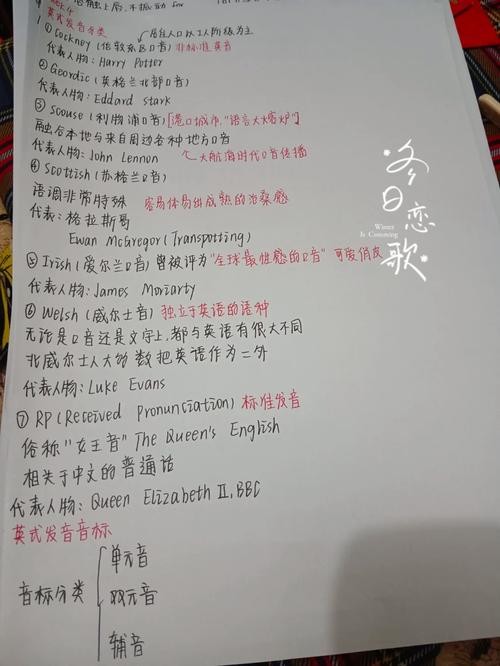 英式发音分类
居住人口以工人阶级为主
① Cockney (伦敦东区口音) 非标准英音
代表人物: Harry Potter
② Geordie (英格兰北部口音)
代表人物: Eddard Stark
③ Scouse (利物浦口音) [港口城市, "语言大熔炉"]
融合本地与来自周边各种地方口音
代表人物: John Lennon 大航海时代口音传播
④ Scottish (苏格兰口音)
语调非常特殊
代表: 格拉斯哥
Ewan McGregor (Transpotting)
⑤ Irish (爱尔兰口音) 曾被评为 "全球最性感的口音" 可爱俏皮
代表人物: James Moriarty
⑥ Welsh (威尔士音) 独立于英语的语种
无论是口音还是文字上, 都与英语有很大不同
北威尔士人大多数把英语作为二外
代表人物: Luke Evans
⑦ RP (Received Pronunciation) 标准发音
俗称 "女王音" The Queen's English
相关于中文的普通话
代表人物: Queen Elizabeth II, BBC
英式发音音标
音标分类
单元音
双元音
辅音
冬日恋歌
Winter
Is Comming